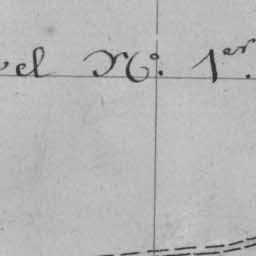 el N.º 1.er